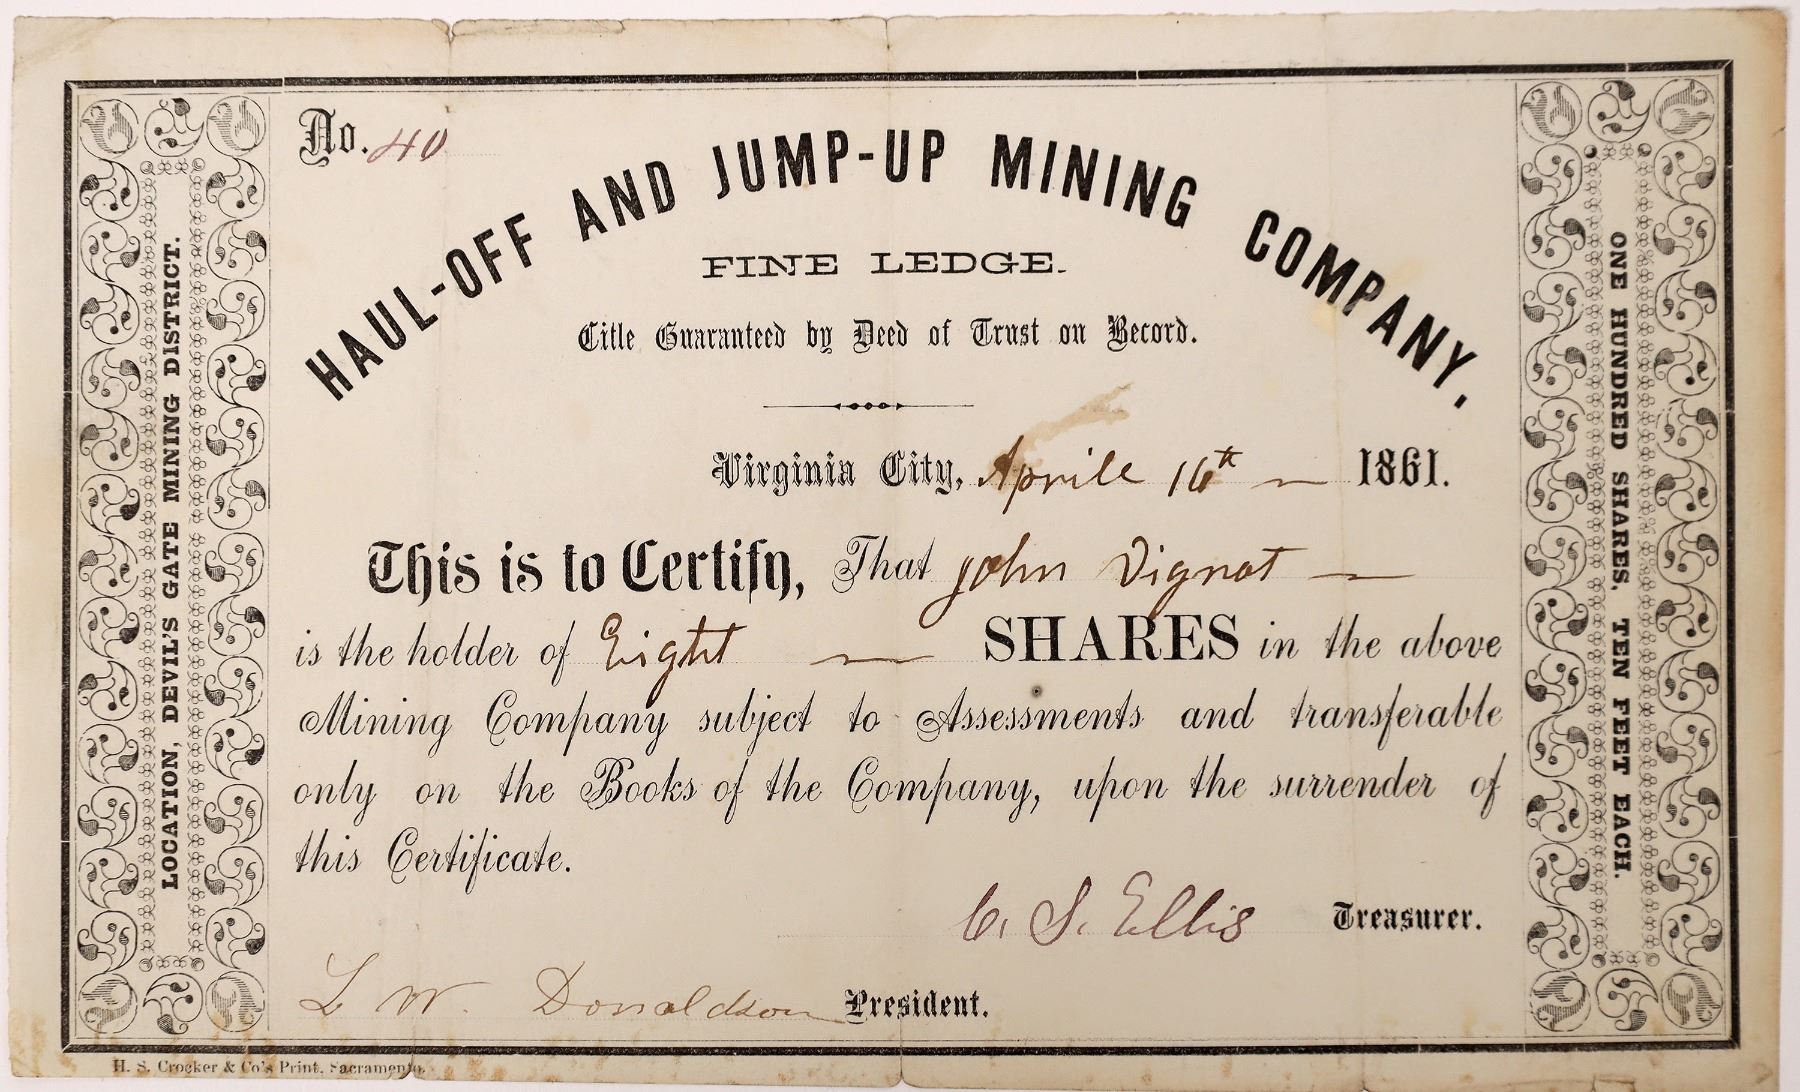 No. 40
HAUL-OFF AND JUMP-UP MINING COMPANY.
FINE LEDGE.
Title Guaranteed by Deed of Trust on Record.
Virginia City, Aprill 16th 1861.
This is to Certify, That John Vignot
is the holder of Eight SHARES in the above
Mining Company subject to Assessments and transferable
only on the Books of the Company, upon the surrender of
this Certificate.
C. S. Ellis Treasurer.
L W. Donaldson President.
LOCATION, DEVIL'S GATE MINING DISTRICT.
ONE HUNDRED SHARES, TEN FEET EACH.
H. S. Crocker & Co's Print, Sacramento.